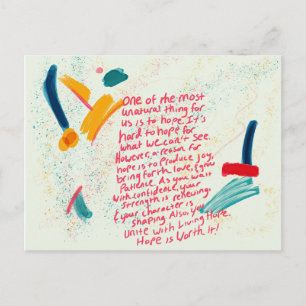 One of the most
unatural thing for
us is to hope. It's
hard to hope for
what we can't see.
However, a reason for
hope is to Produce joy,
bring forth love, & grow
Patience. As you wait
with confidence, your
strength is renewing
& your character is
shaping. Also, you
unite with Living Hope.
Hope is Worth it!